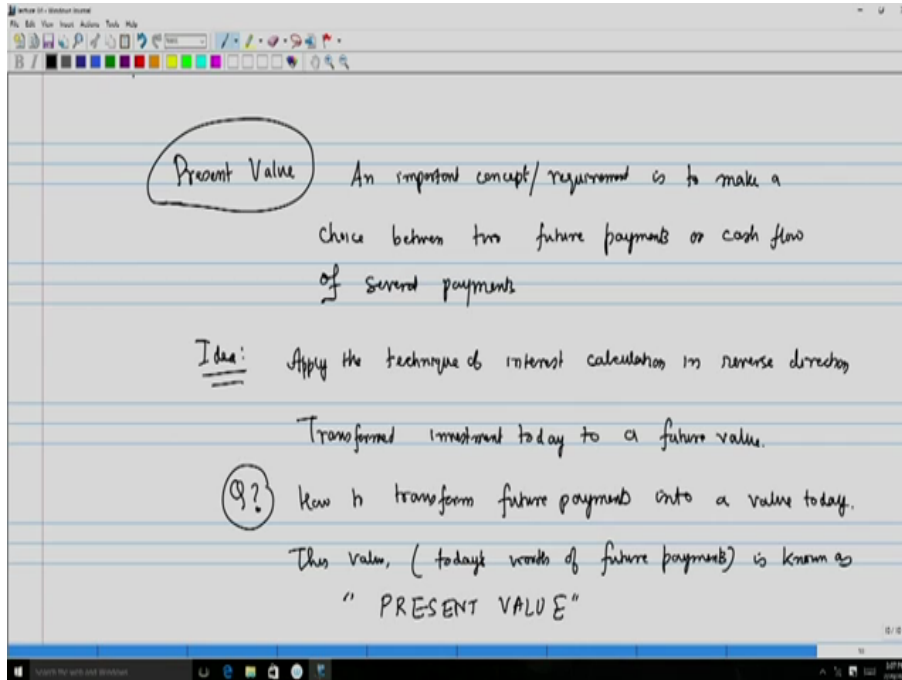 File Edit View Insert Actions Tools Help
B I
Present Value An important concept/requirement is to make a
choice between two future payments or cash flow
of several payments
Idea: Apply the technique of interest calculation in reverse direction
Transformed investment today to a future value.
Q? How to transform future payments into a value today.
This value, (today's worth of future payments) is known as
" PRESENT VALUE"
10/10
10
Search the web and Windows